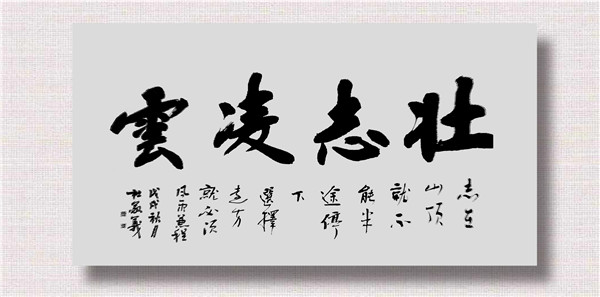 壮志凌雲
志在
山顶
就不
能半
途停
下
選擇
遠方
就必须
风雨兼程
戊戌秋月